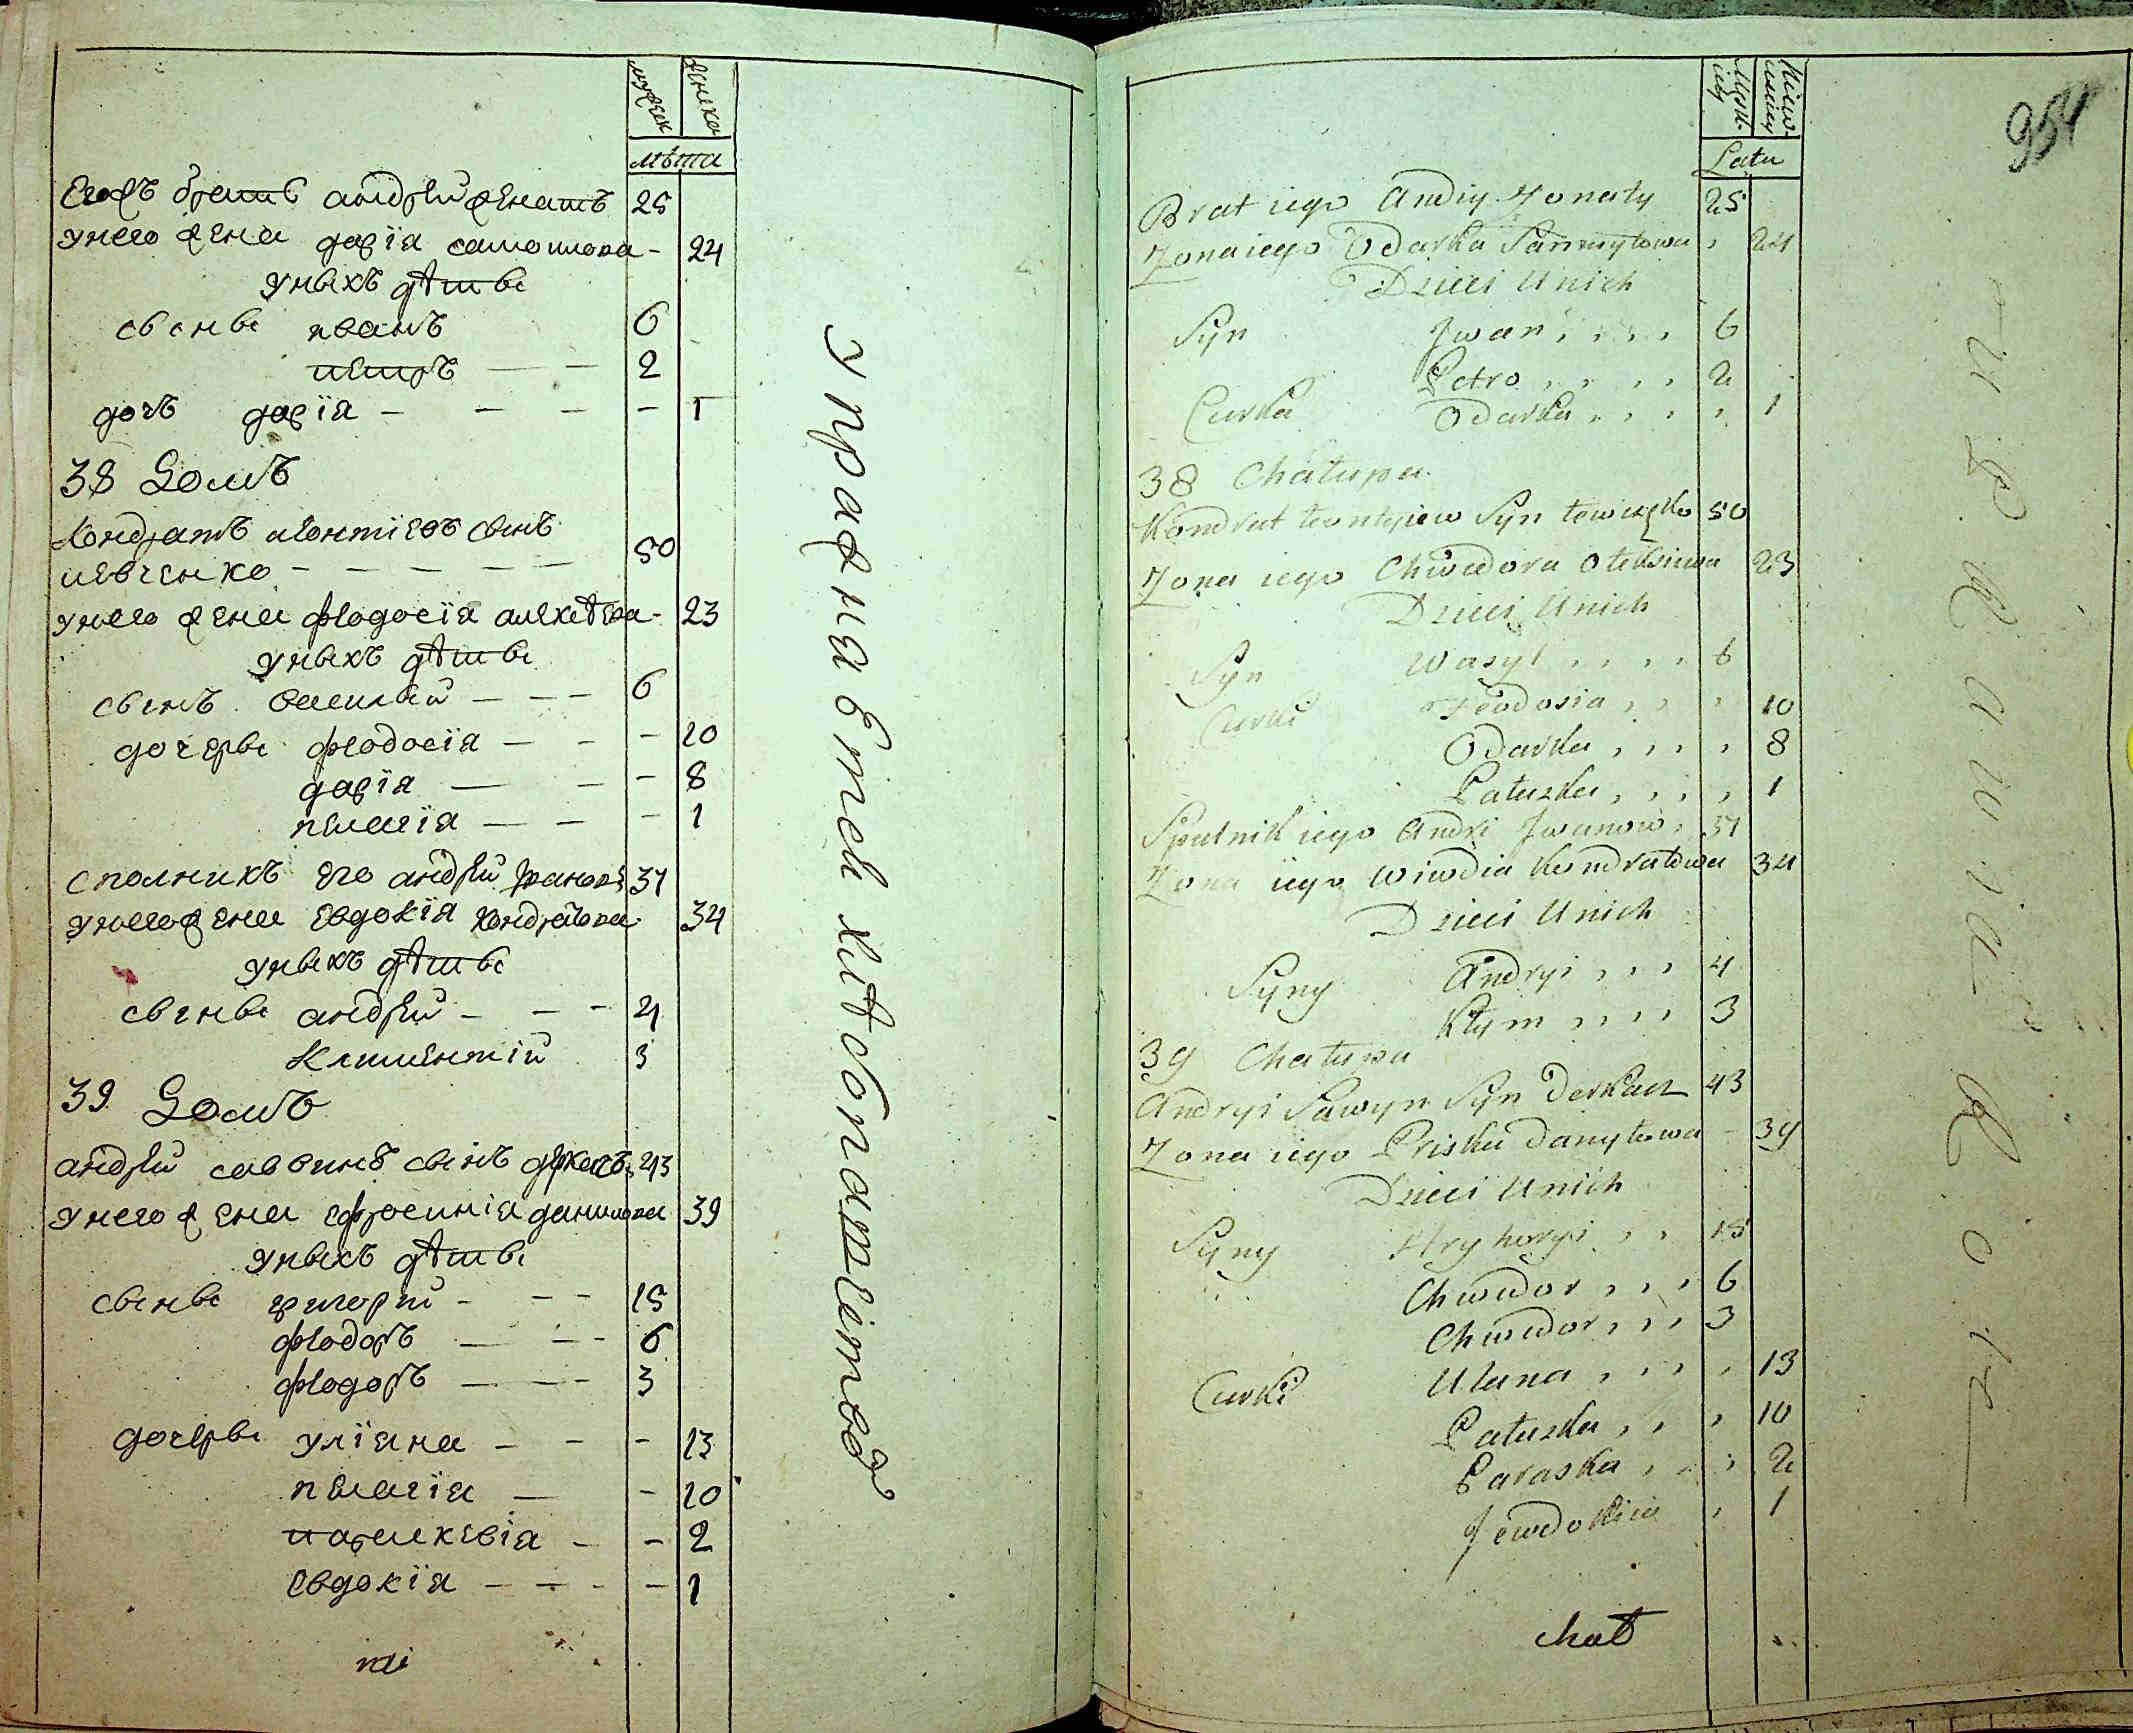 мужеск женско
лѣта
Егожъ братъ андрей женатъ 25
унего жена дарїя самоилова - 24
унихъ дѣти
сыны иванъ 6
петръ — — 2
дочь дарїя - - - - 1
38 Домъ
Кондратъ леонтїевъ сынъ
левченко - - - - - 50
унего жена феодосїя алексѣева - 23
унихъ дѣти
сынъ василий - - - 6
дочери феодосїя - - - 10
дарїя — - - 8
пелагїя — - - 1
сполникъ его андрей Іванов 37
унего жена евдокїя кондратова 34
унихъ дѣти
сыны андрей - - - 4
Климентїй 3
39 Домъ
андрей саввинъ сынъ деркачъ 43
унего жена ефросинїя данилова 39
унихъ дѣти
сыны григорий - - - 15
феодоръ — - - 6
феодоръ — - - 3
дочери улїяна - - - 13
пелагїя — - 10
параскевїя - - 2
евдокїя - - - - 1
упражняетей хлѣбопашѣство
Męsk: iey Niew: usciey
Latu
954
Brat iego Andiy Żonaty 25
Żona iego Odarka Samuyłowa , 24
Dzieci Unich
Syn Jwan , , , , 6
Petro , , , , 2
Curka Odarka , , , , 1
38 Chałupa
Kondrat Leontyiew Syn Lewczęko 50
Żona iego Chwedora Oleksiiwa 23
Dzieci Unich
Syn Wasyl , , , , 6
Curki Feodosia , , , 10
Odarka , , , , 8
Pałuzka , , , , 1
Spulnik iego Andri Jwanow , 37
Żona iego Wiwdia Kondratowa 34
Dzieci Unich
Syny Andryi , , , 4
Kłym , , , , 3
39 Chałupa
Andryi Sawyn Syn Derkacz 43
Żona iego Priska Danyłowa - 39
Dzieci Unich
Syny Hryhoryi , , 15
Chwedor , , , 6
Chwedor , , , 3
Curki Ulana , , , , 13
Pałuzka , , , 10
Paraska , , , 2
Jewdokiia , 1
chat